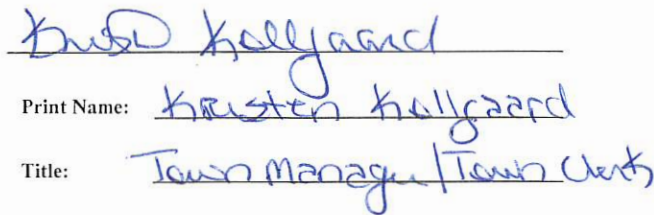 Kollgaard
Print Name: Kristen Kollgaard
Title: Town Manager/Town Clerk